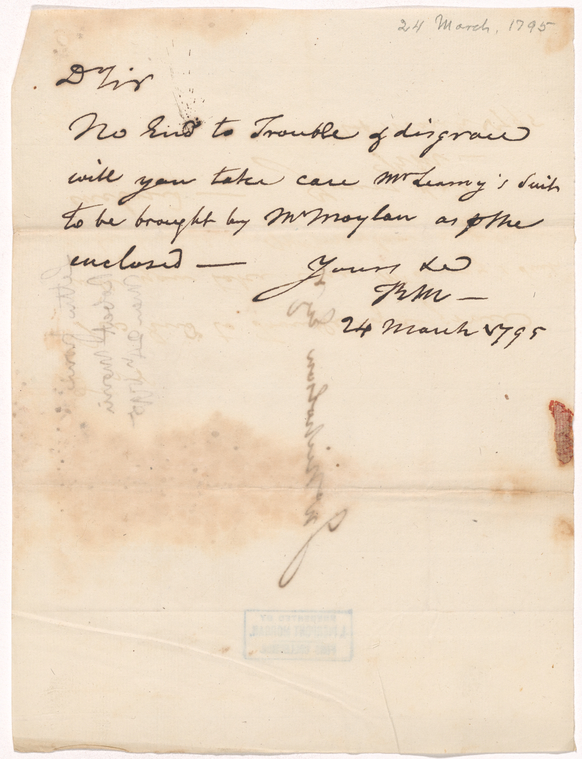 24 March, 1795
Dr Sir
No End to Trouble & disgrace
will you take care Mr Leamy's Suit
to be brought by Mr Moylan as þ the
enclosed —
Yours &c
RM —
24 March 1795